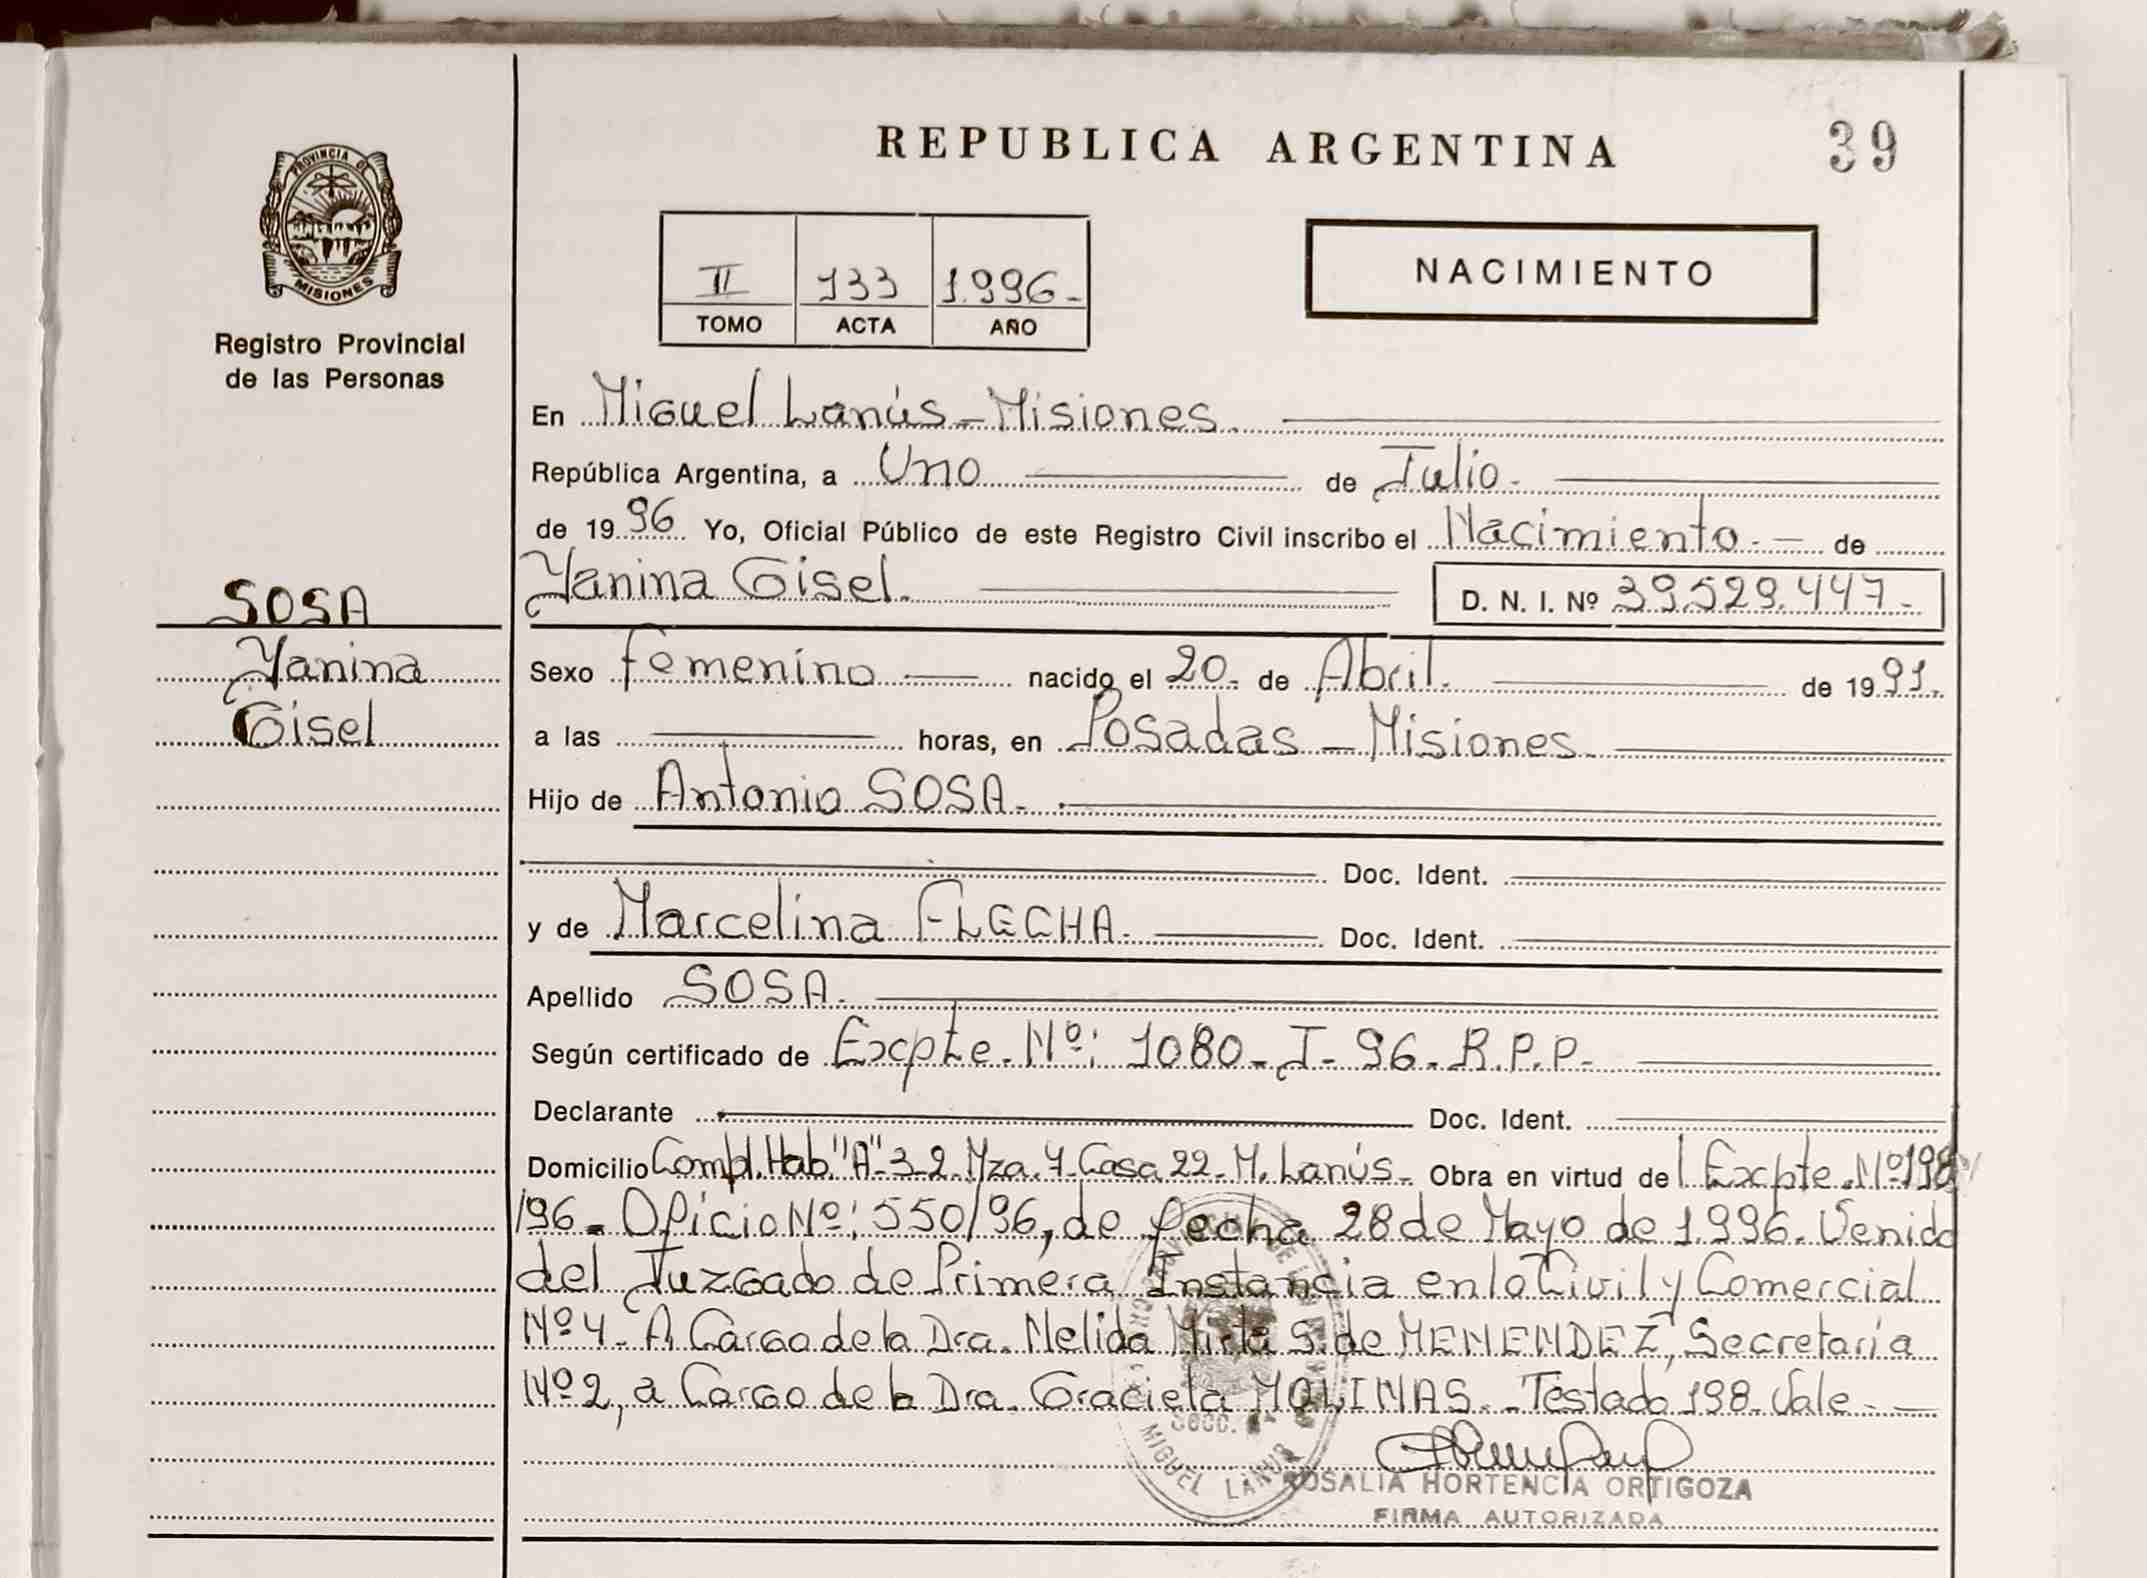 REPUBLICA ARGENTINA
39
PROVINCIA DE
MISIONES
Registro Provincial
de las Personas
II 133 1.996.-
TOMO ACTA AÑO
NACIMIENTO
En Miguel Lanús - Misiones.
República Argentina, a Uno de Julio.
de 1996 Yo, Oficial Público de este Registro Civil inscribo el Nacimiento.- de
Yanina Gisel. D. N. I. Nº 39.529.447.-
SOSA
Yanina
Gisel
Sexo femenino nacido el 20. de Abril. de 1991.
a las horas, en Posadas - Misiones
Hijo de Antonio SOSA.
Doc. Ident.
y de Marcelina FLECHA. Doc. Ident.
Apellido SOSA.
Según certificado de Excpte. Nº: 1080-I-96. R.P.P.
Declarante Doc. Ident.
Domicilio Compl. Hab. "A"-3-2. Mza. 4. Casa 22. M. Lanús. Obra en virtud del Excpte. Nº 198
/96. Oficio Nº: 550/96, de fecha 28 de Mayo de 1.996. Venido
del Juzgado de Primera Instancia en lo Civil y Comercial
Nº 4. A Cargo de la Dra. Nelida Mirta S. de MENENDEZ, Secretaría
Nº 2, a Cargo de la Dra. Graciela MOLINAS. Testado 198. Vale.
MIGUEL LANUS
ROSALIA HORTENCIA ORTIGOZA
FIRMA AUTORIZADA